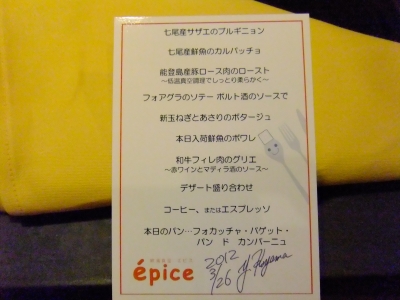 七尾産サザエのブルギニョン
七尾産鮮魚のカルパッチョ
能登島産豚ロース肉のロースト
～低温真空調理でしっとり柔らかく～
フォアグラのソテー ポルト酒のソースで
新玉ねぎとあさりのポタージュ
本日入荷鮮魚のポワレ
和牛フィレ肉のグリエ
～赤ワインとマディラ酒のソース～
デザート盛り合わせ
コーヒー、またはエスプレッソ
本日のパン…フォカッチャ・バゲット・
パン ド カンパーニュ
épice
2012
3/26